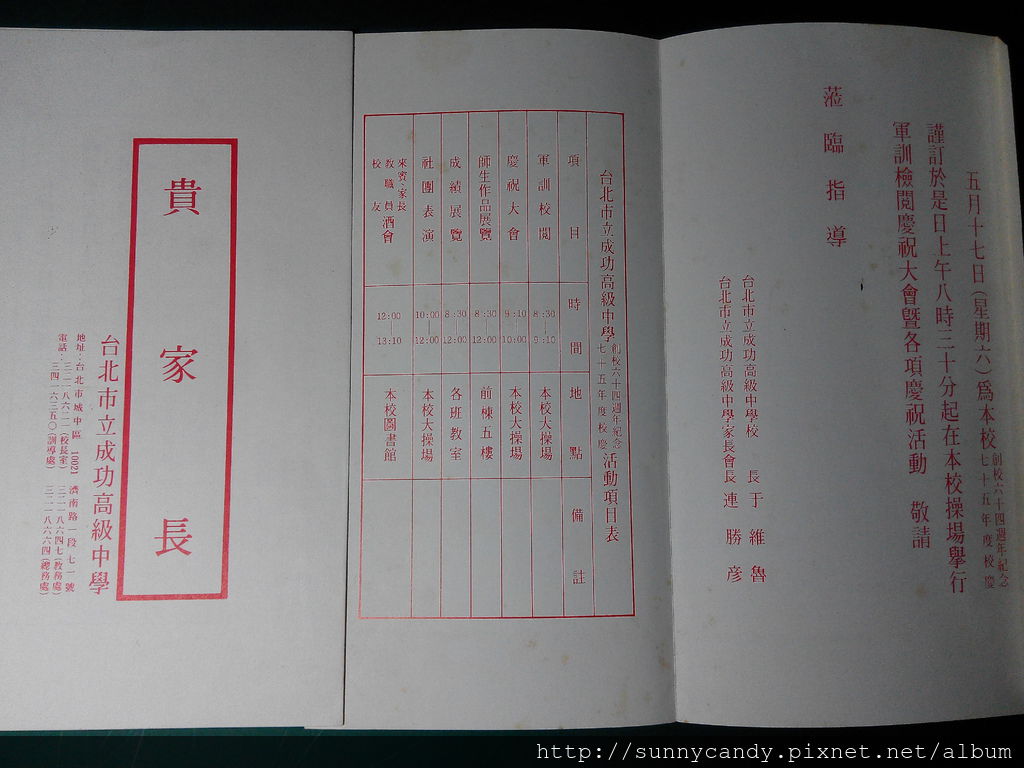 五月十七日(星期六)爲本校創校六十四週年紀念七十五年度校慶
謹訂於是日上午八時三十分起在本校操場舉行
軍訓檢閱慶祝大會暨各項慶祝活動 敬請
蒞臨指導
台北市立成功高級中學校 長 于維魯
台北市立成功高級中學家長會長 連勝彦
台北市立成功高級中學創校六十四週年紀念七十五年度校慶活動項目表
項目 時間 地點 備註
軍訓校閱 8:30｜9:10 本校大操場
慶祝大會 9:10｜10:00 本校大操場
師生作品展覽 8:30｜12:00 前棟五樓
成績展覽 8:30｜12:00 各班教室
社團表演 10:00｜12:00 本校大操場
來賓、家長教職員校友酒會 12:00｜13:10 本校圖書館
貴家長
台北市立成功高級中學
地址:台北市城中區 10021 濟南路一段七一號
電話:三二一八六二一(校長室) 三二一八六四七(教務處)
三四一六三五〇(訓導處) 三二一八六六四(總務處)
http://sunnycandy.pixnet.net/album